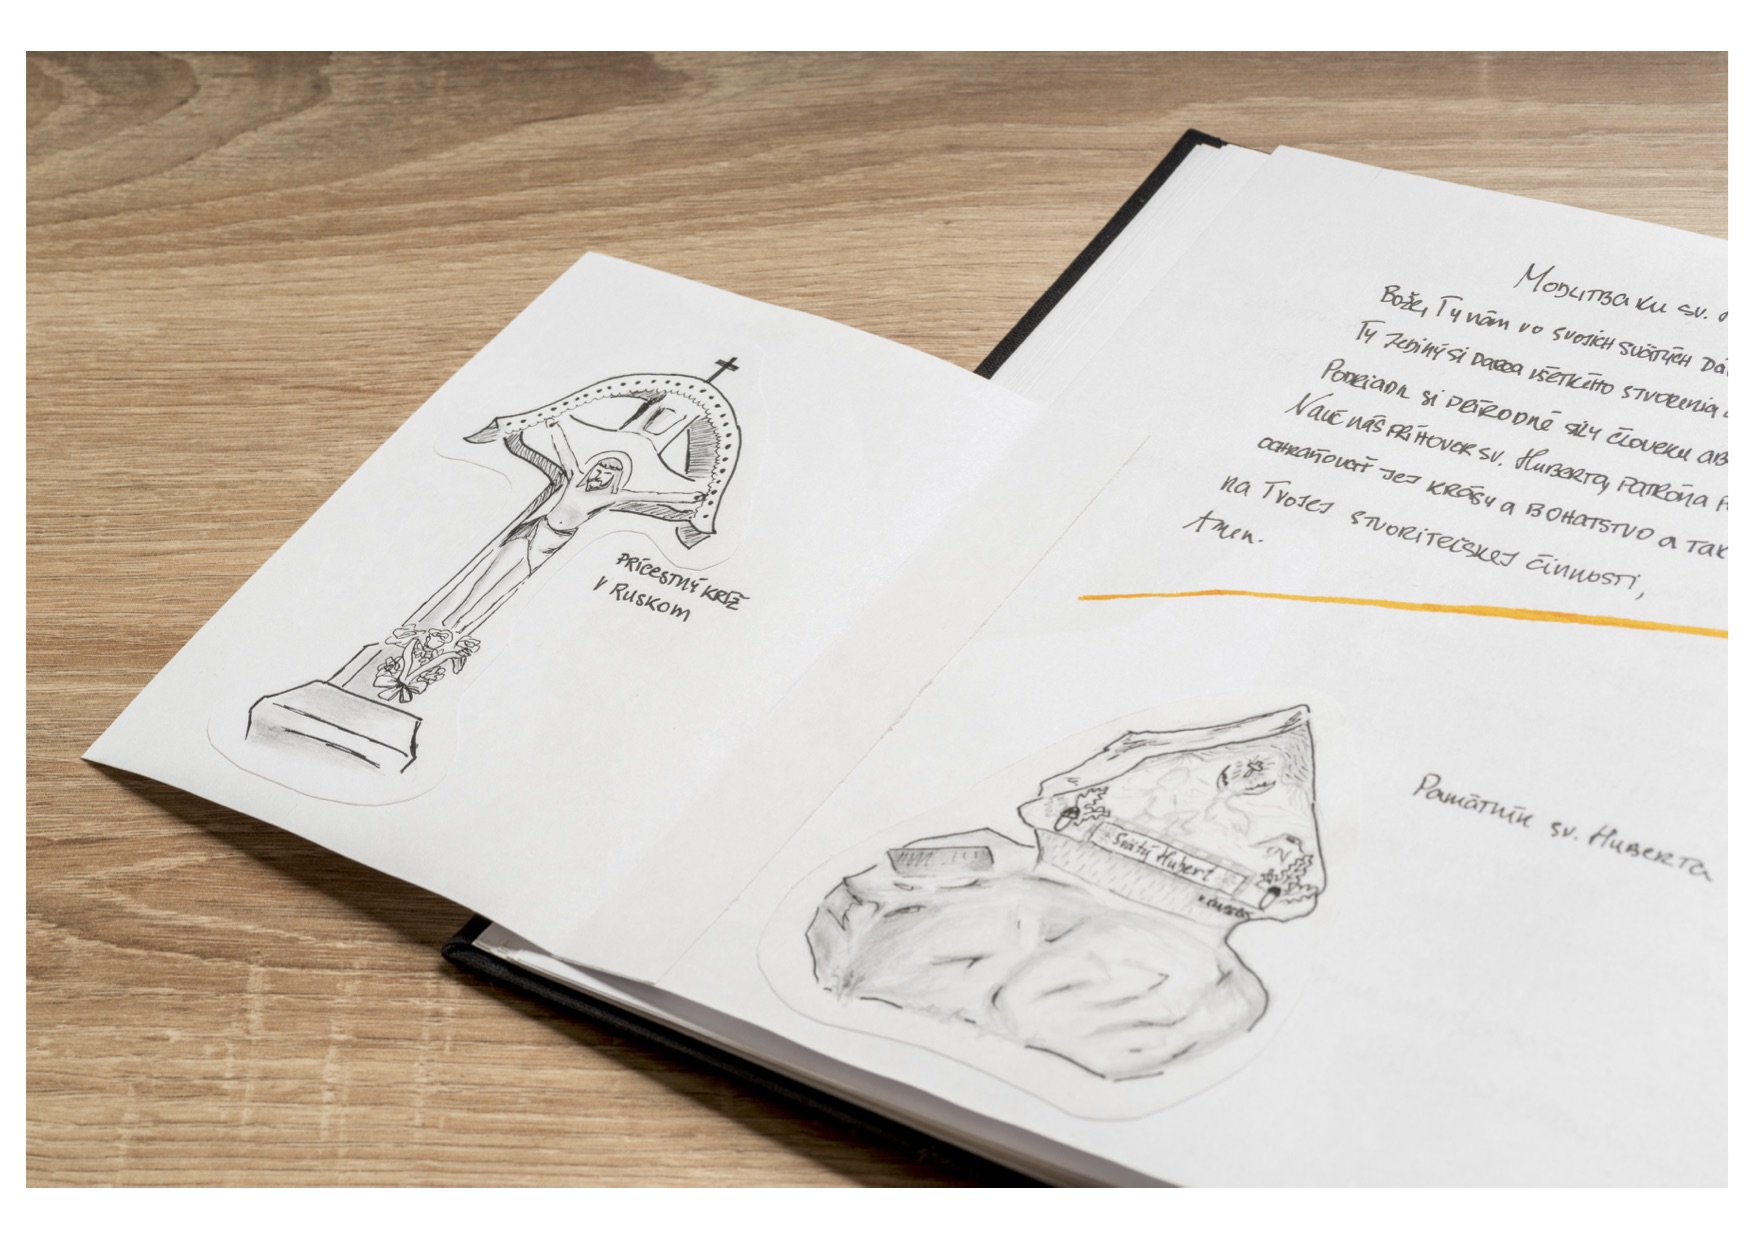 PRÍCESTNÝ KRÍŽ
V RUSKOM
MODLITBA KU SV.
Bože, Ty nám vo svojich svätých
Ty jediný si darca všetkého stvorenia
Podriadil si prírodné sily človeku
Nauč nás príhovor sv. Huberta, patróna
ochraňovať jej krásy a bohatstvo a
na Tvojej stvoriteľskej činnosti,
Amen.
Svätý Hubert
Pamätník sv. Huberta